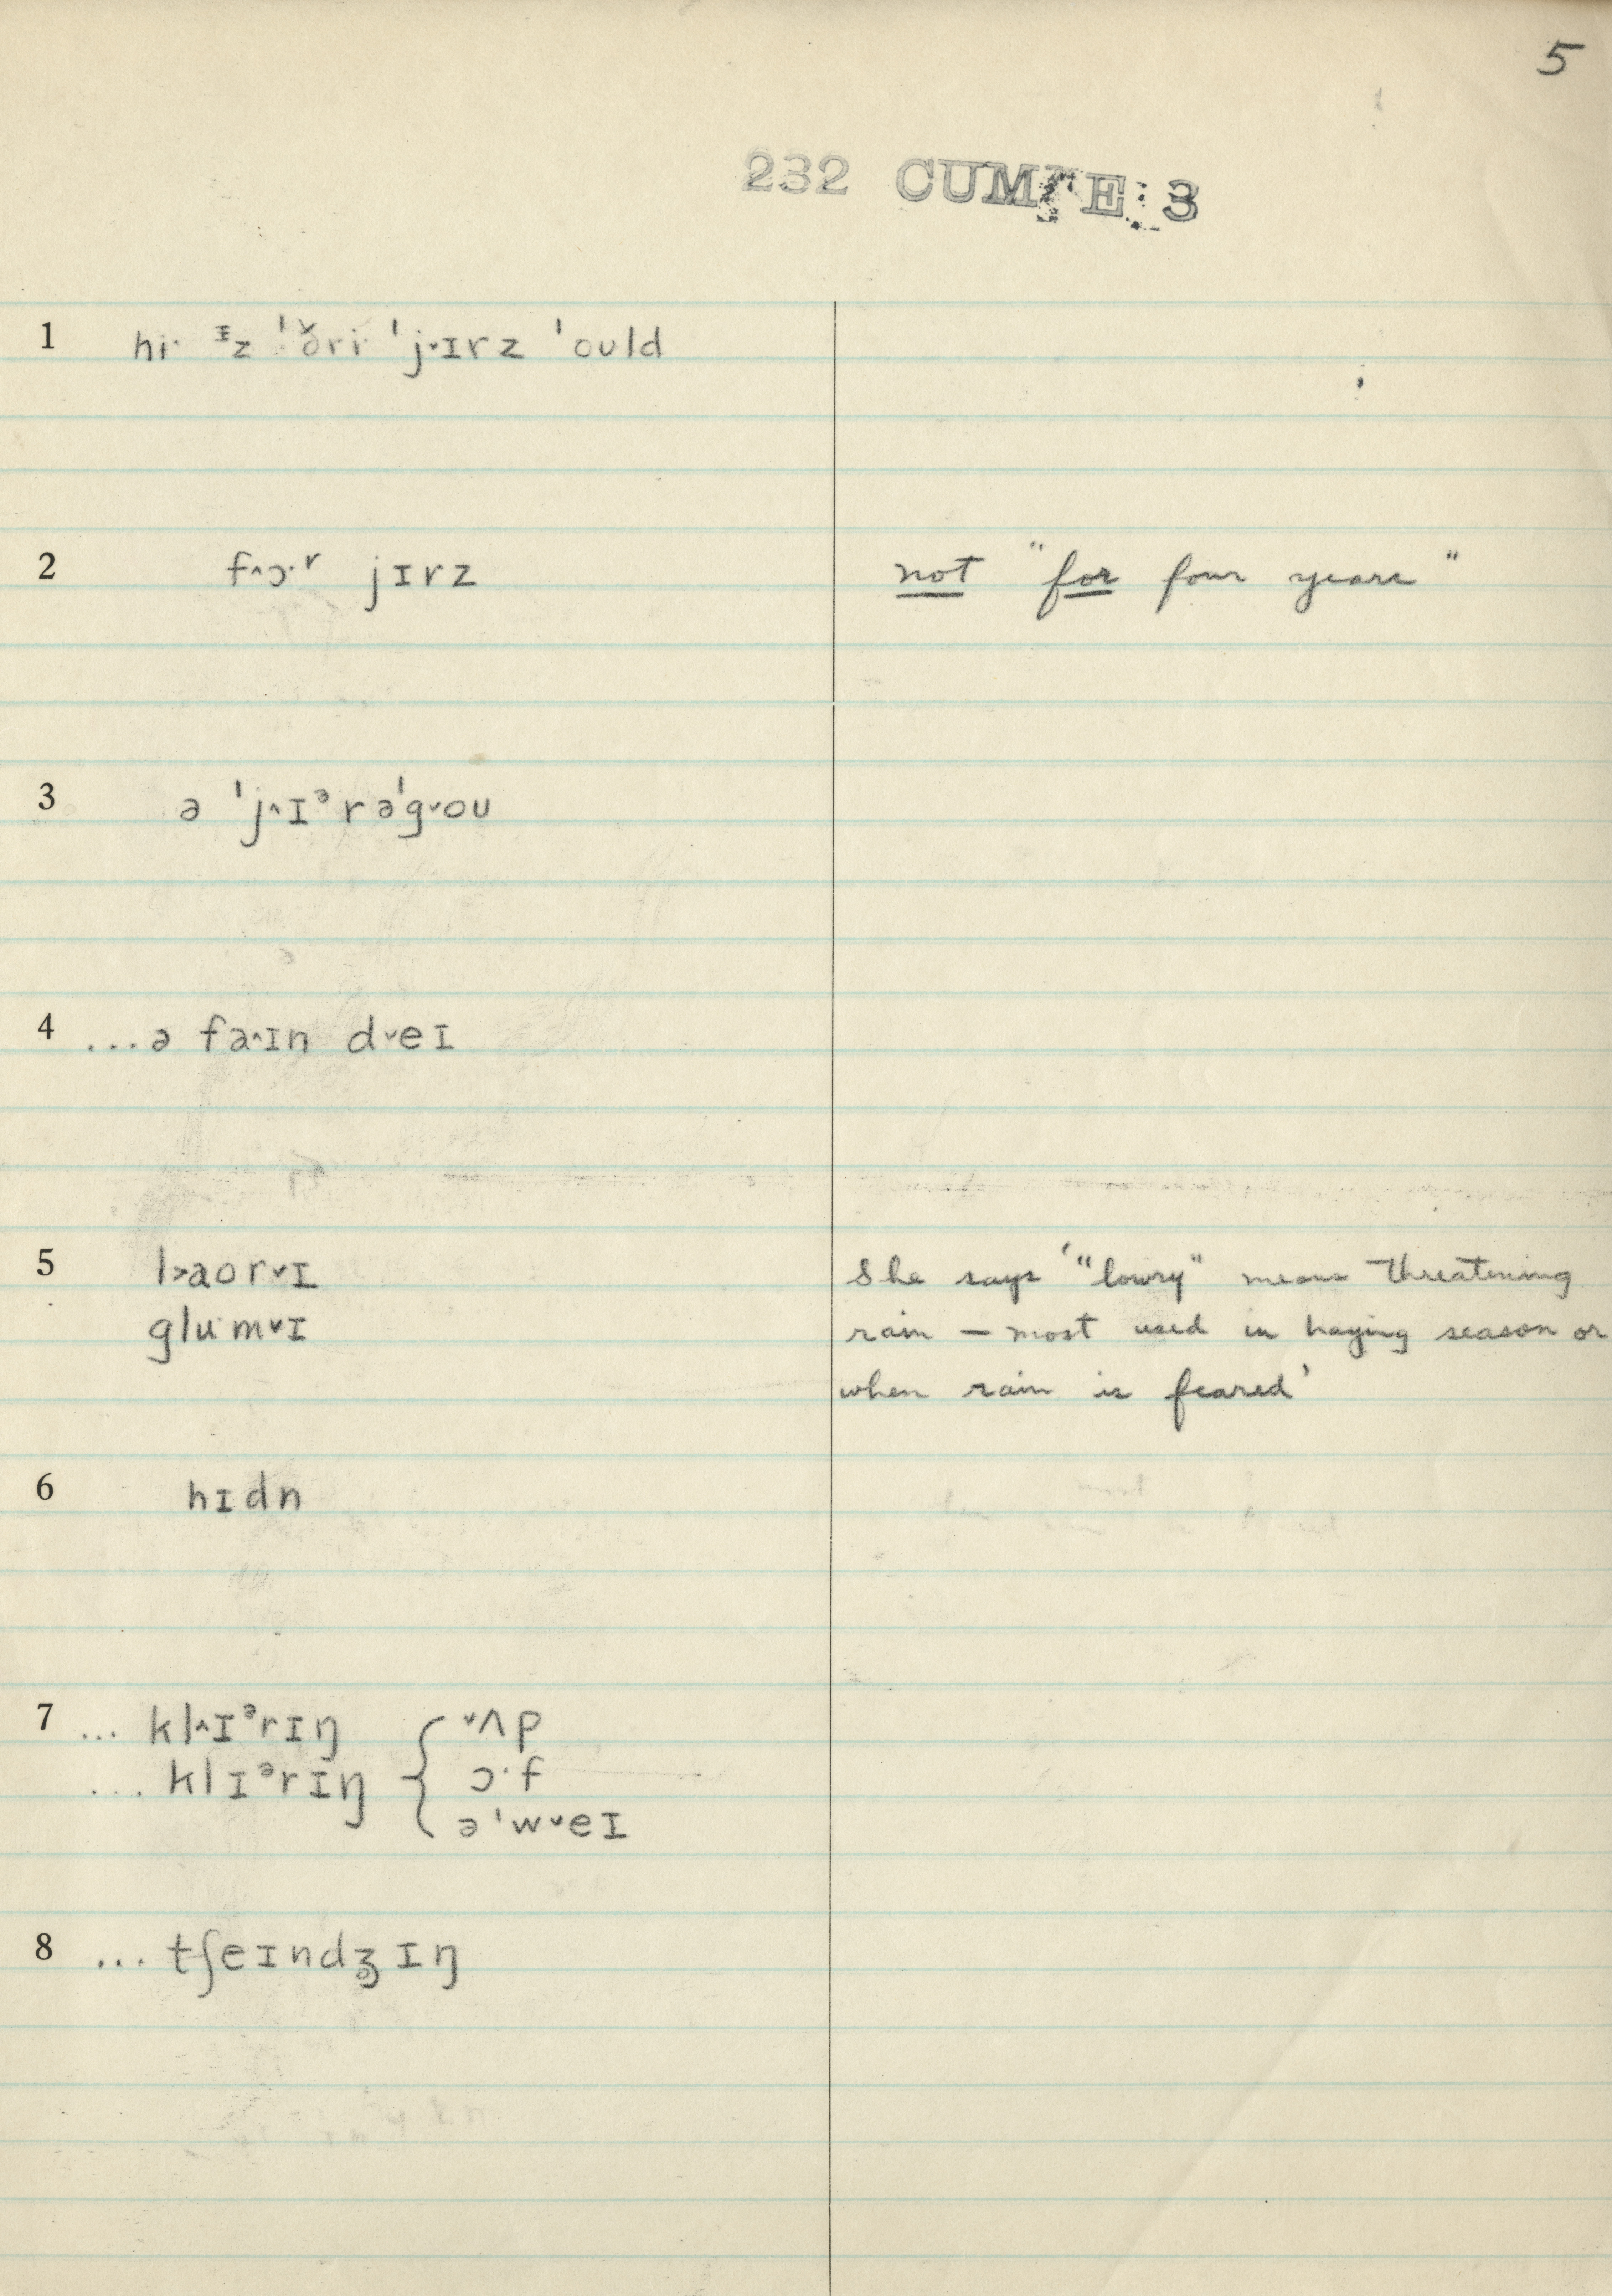 5
232 CUM E: 3
1 hi· ᶦz ˈðri· ˈj˅ɪrz ˈould
2 f^ɔ·ʳ jɪrz not "for four years"
3 ə ˈj^ɪᵊrəˈg˅ou
4 ...ə fa^ɪn d˅eɪ
5 l>aor˅ɪ She says '"lowry" means threatening
glu·m˅ɪ rain — most used in haying season or
when rain is feared'
6 hɪdn
7 ... kl^ɪᵊrɪŋ { ˅ʌp
... klɪᵊrɪŋ ɔ·f
əˈw˅eɪ
8 ... tʃeɪndʒɪŋ